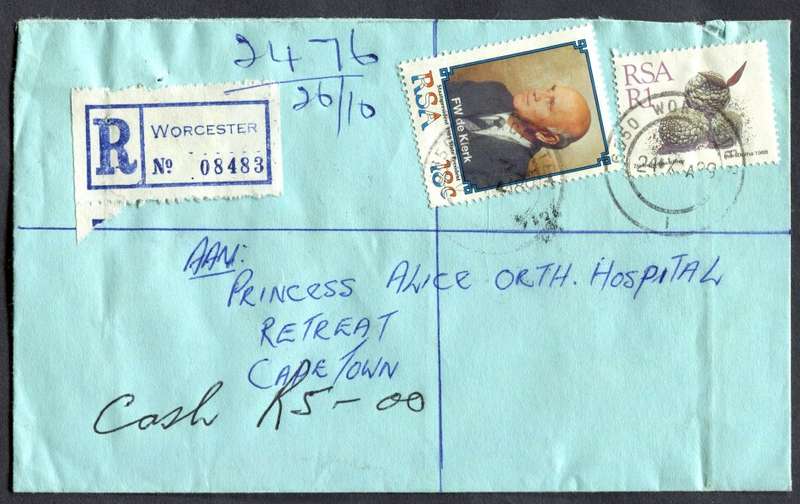 2476
26/10
R WORCESTER
Nº 08483
RSA
18c
FW de Klerk
RSA
R1
6850 WO
24 X
AAN:
PRINCESS ALICE ORTH. HOSPITAL
RETREAT
CAPE TOWN
Cash R5-00